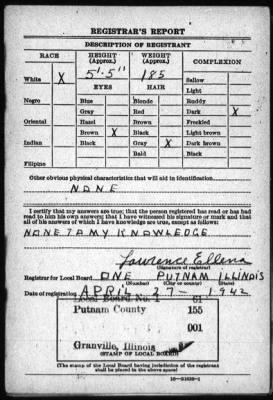 REGISTRAR'S REPORT
DESCRIPTION OF REGISTRANT
RACE HEIGHT (Approx.) WEIGHT (Approx.) COMPLEXION
White X 5'-5" 185 Sallow
EYES HAIR Light
Negro Blue Blonde Ruddy
Gray Red Dark X
Oriental Hazel Brown Freckled
Brown X Black Light brown
Indian Black Gray X Dark brown
Bald Black
Filipino
Other obvious physical characteristics that will aid in identification
NONE
I certify that my answers are true; that the person registered has read or has had
read to him his own answers; that I have witnessed his signature or mark and that
all of his answers of which I have knowledge are true, except as follows:
NONE TO MY KNOWLEDGE
Lawrence Ellena
(Signature of registrar)
Registrar for Local Board ONE PUTNAM ILLINOIS
(Number) (City or county) (State)
Date of registration APRIL 27- 1942
Local Board No. 1 61
Putnam County 155
001
Granville, Illinois
(STAMP OF LOCAL BOARD)
(The stamp of the Local Board having jurisdiction of the registrant
shall be placed in the above space)